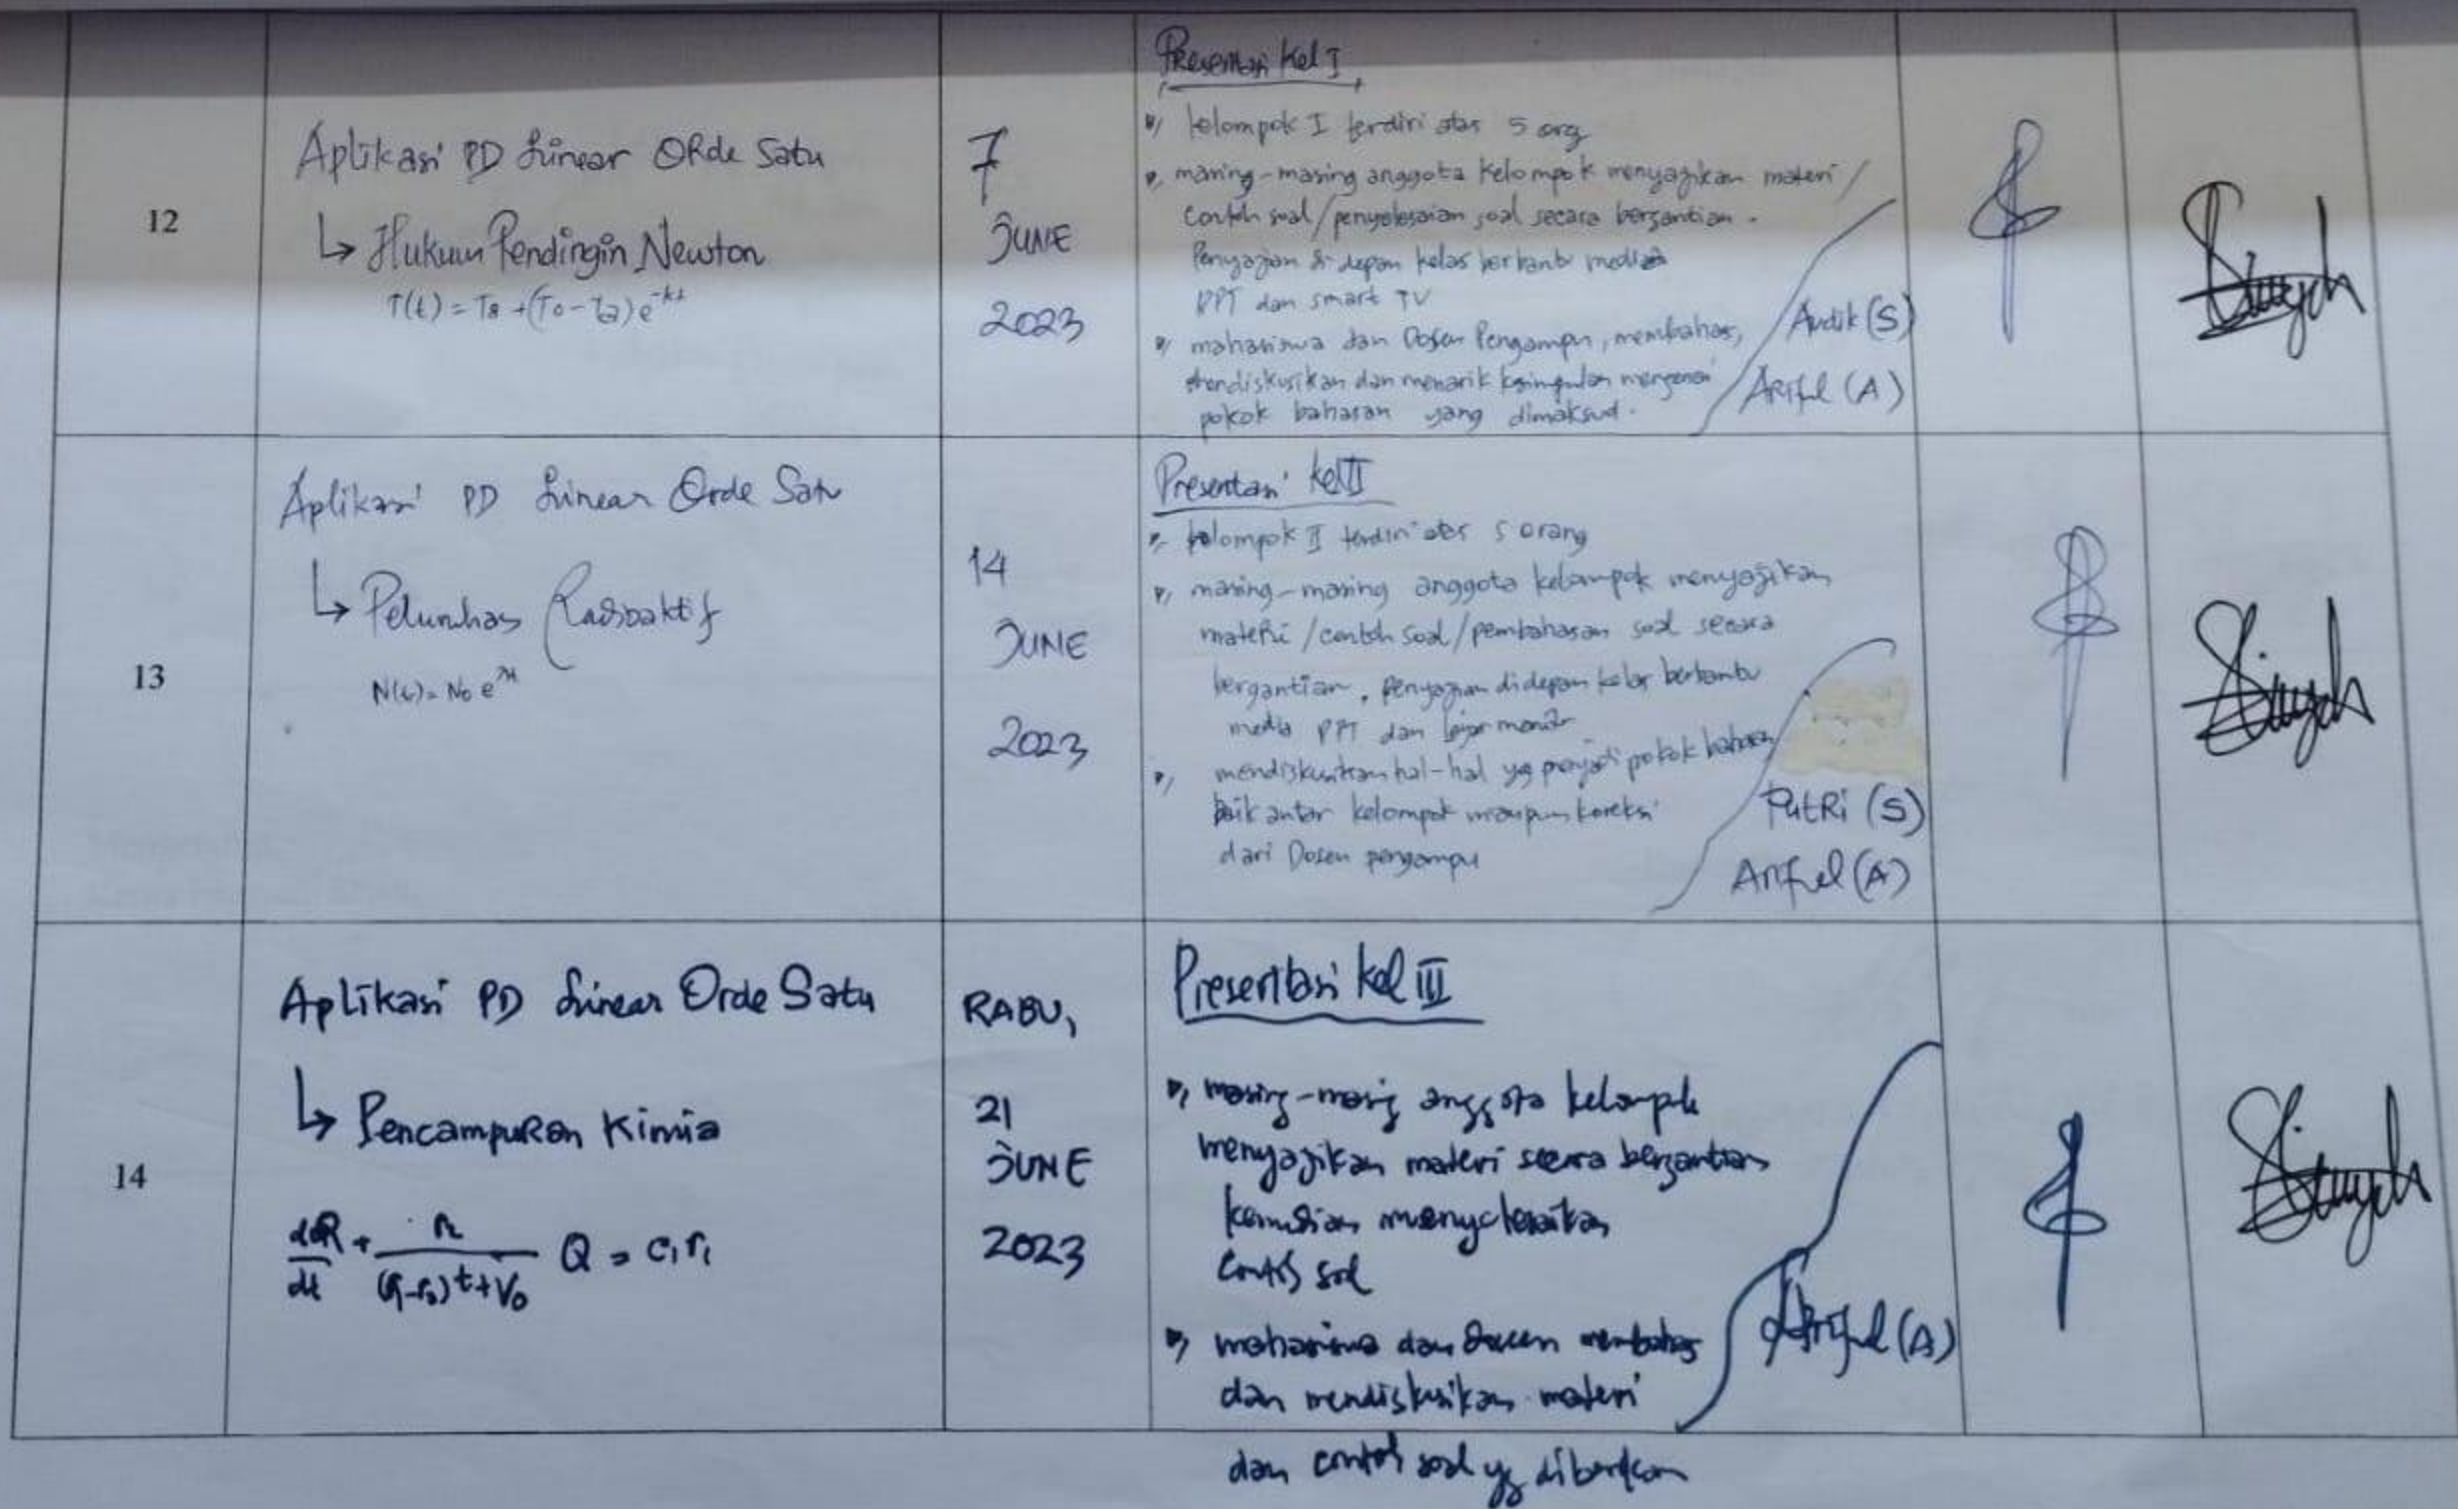 12
Aplikasi PD Linear Orde Satu
↳ Hukum Pendingin Newton
T(t) = Ta + (To - Ta) e^-kt
7
JUNE
2023
Presentasi Kel I
kelompok I terdiri atas 5 org
masing-masing anggota kelompok menyajikan materi /
contoh soal/penyelesaian soal secara bergantian.
Penyajian di depan kelas berbantu media
PPT dan smart TV
mahasiswa dan Dosen Pengampu, membahas,
mendiskusikan dan menarik kesimpulan mengenai
pokok bahasan yang dimaksud.
Audik (S)
Ariful (A)
13
Aplikasi PD Linear Orde Satu
↳ Peluruhan Radioaktif
N(t) = No e^λt
14
JUNE
2023
Presentasi kel II
kelompok II terdiri atas 5 orang
masing-masing anggota kelompok menyajikan
materi /contoh soal/pembahasan soal secara
bergantian. Penyajian didepan kelas berbantu
media PPT dan layar monitor
mendiskusikan hal-hal yg menjadi pokok bahasan
baik antar kelompok maupun koreksi
dari Dosen pengampu
Putri (S)
Ariful (A)
14
Aplikasi PD Linear Orde Satu
↳ Pencampuran Kimia
dQ/dt + r2/((r1-r2)t+V0) Q = c1 r1
RABU,
21
JUNE
2023
Presentasi kel III
masing-masing anggota kelompok
menyajikan materi secara bergantian
kemudian menyelesaikan
contoh soal
mahasiswa dan dosen membahas
dan mendiskusikan materi
dan contoh soal yg diberikan
Ariful (A)